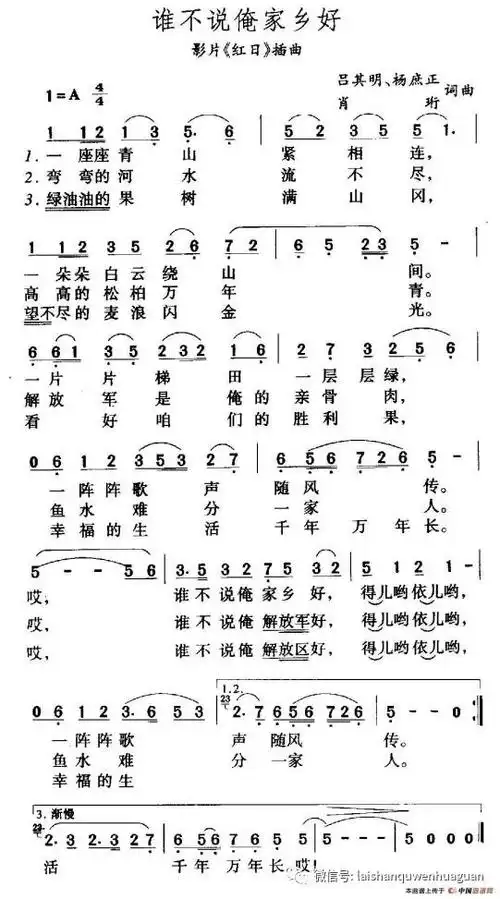 谁不说俺家乡好
影片《红日》插曲
1=A 4/4
吕其明、杨庶正
肖 珩 词曲
1 1 2 1 3 5· 6 | 5 2 3 5 5 1·
1. 一 座座 青 山 紧 相 连，
2. 弯 弯的 河 水 流 不 尽，
3. 绿油油的 果 树 满 山 冈，
1 1 2 3 5 2 6 7 2 | 6 5 2 3 5 - -
一 朵朵 白 云 绕 山 间。
高 高的 松 柏 万 年 青。
望不尽的 麦 浪 闪 金 光。
6 6 1 3 5 7 3 2 1 6 | 2 7 3 2 5 6
一 片 片 梯 田 一 层 层 绿，
解 放 军 是 俺 的 亲 骨 肉，
看 好 咱 们 的 胜 利 果，
0 6 1 2 3 5 3 2 7 | 6 5 6 7 2 6 5 -
一 阵 阵 歌 声 随 风 传。
鱼 水 难 分 一 家 人。
幸 福 的 生 活 千 年 万 年 长。
5 - - 5 6 | 3· 5 3 2 7 5 3 2 | 5 1 2 1 -
哎， 谁 不 说 俺 家 乡 好， 得儿哟依儿哟，
哎， 谁 不 说 俺 解放军 好， 得儿哟依儿哟，
哎， 谁 不 说 俺 解放区 好， 得儿哟依儿哟，
1.2.
0 6 1 2 3· 6 5 3 | 2· 7 6 5 6 7 2 6 | 5 - - 0
一 阵 阵 歌 声 随 风 传。
鱼 水 难 分 一 家 人。
幸 福 的 生
3. 渐慢
2· 3 2 3 2 7 | 6 1 5 6 7 2 6 | 5 - - - | 5 0 0 0
活 千 年 万 年 长，哎！
微信号: laishanquwenhuaguan
本曲谱上传于 中国曲谱网